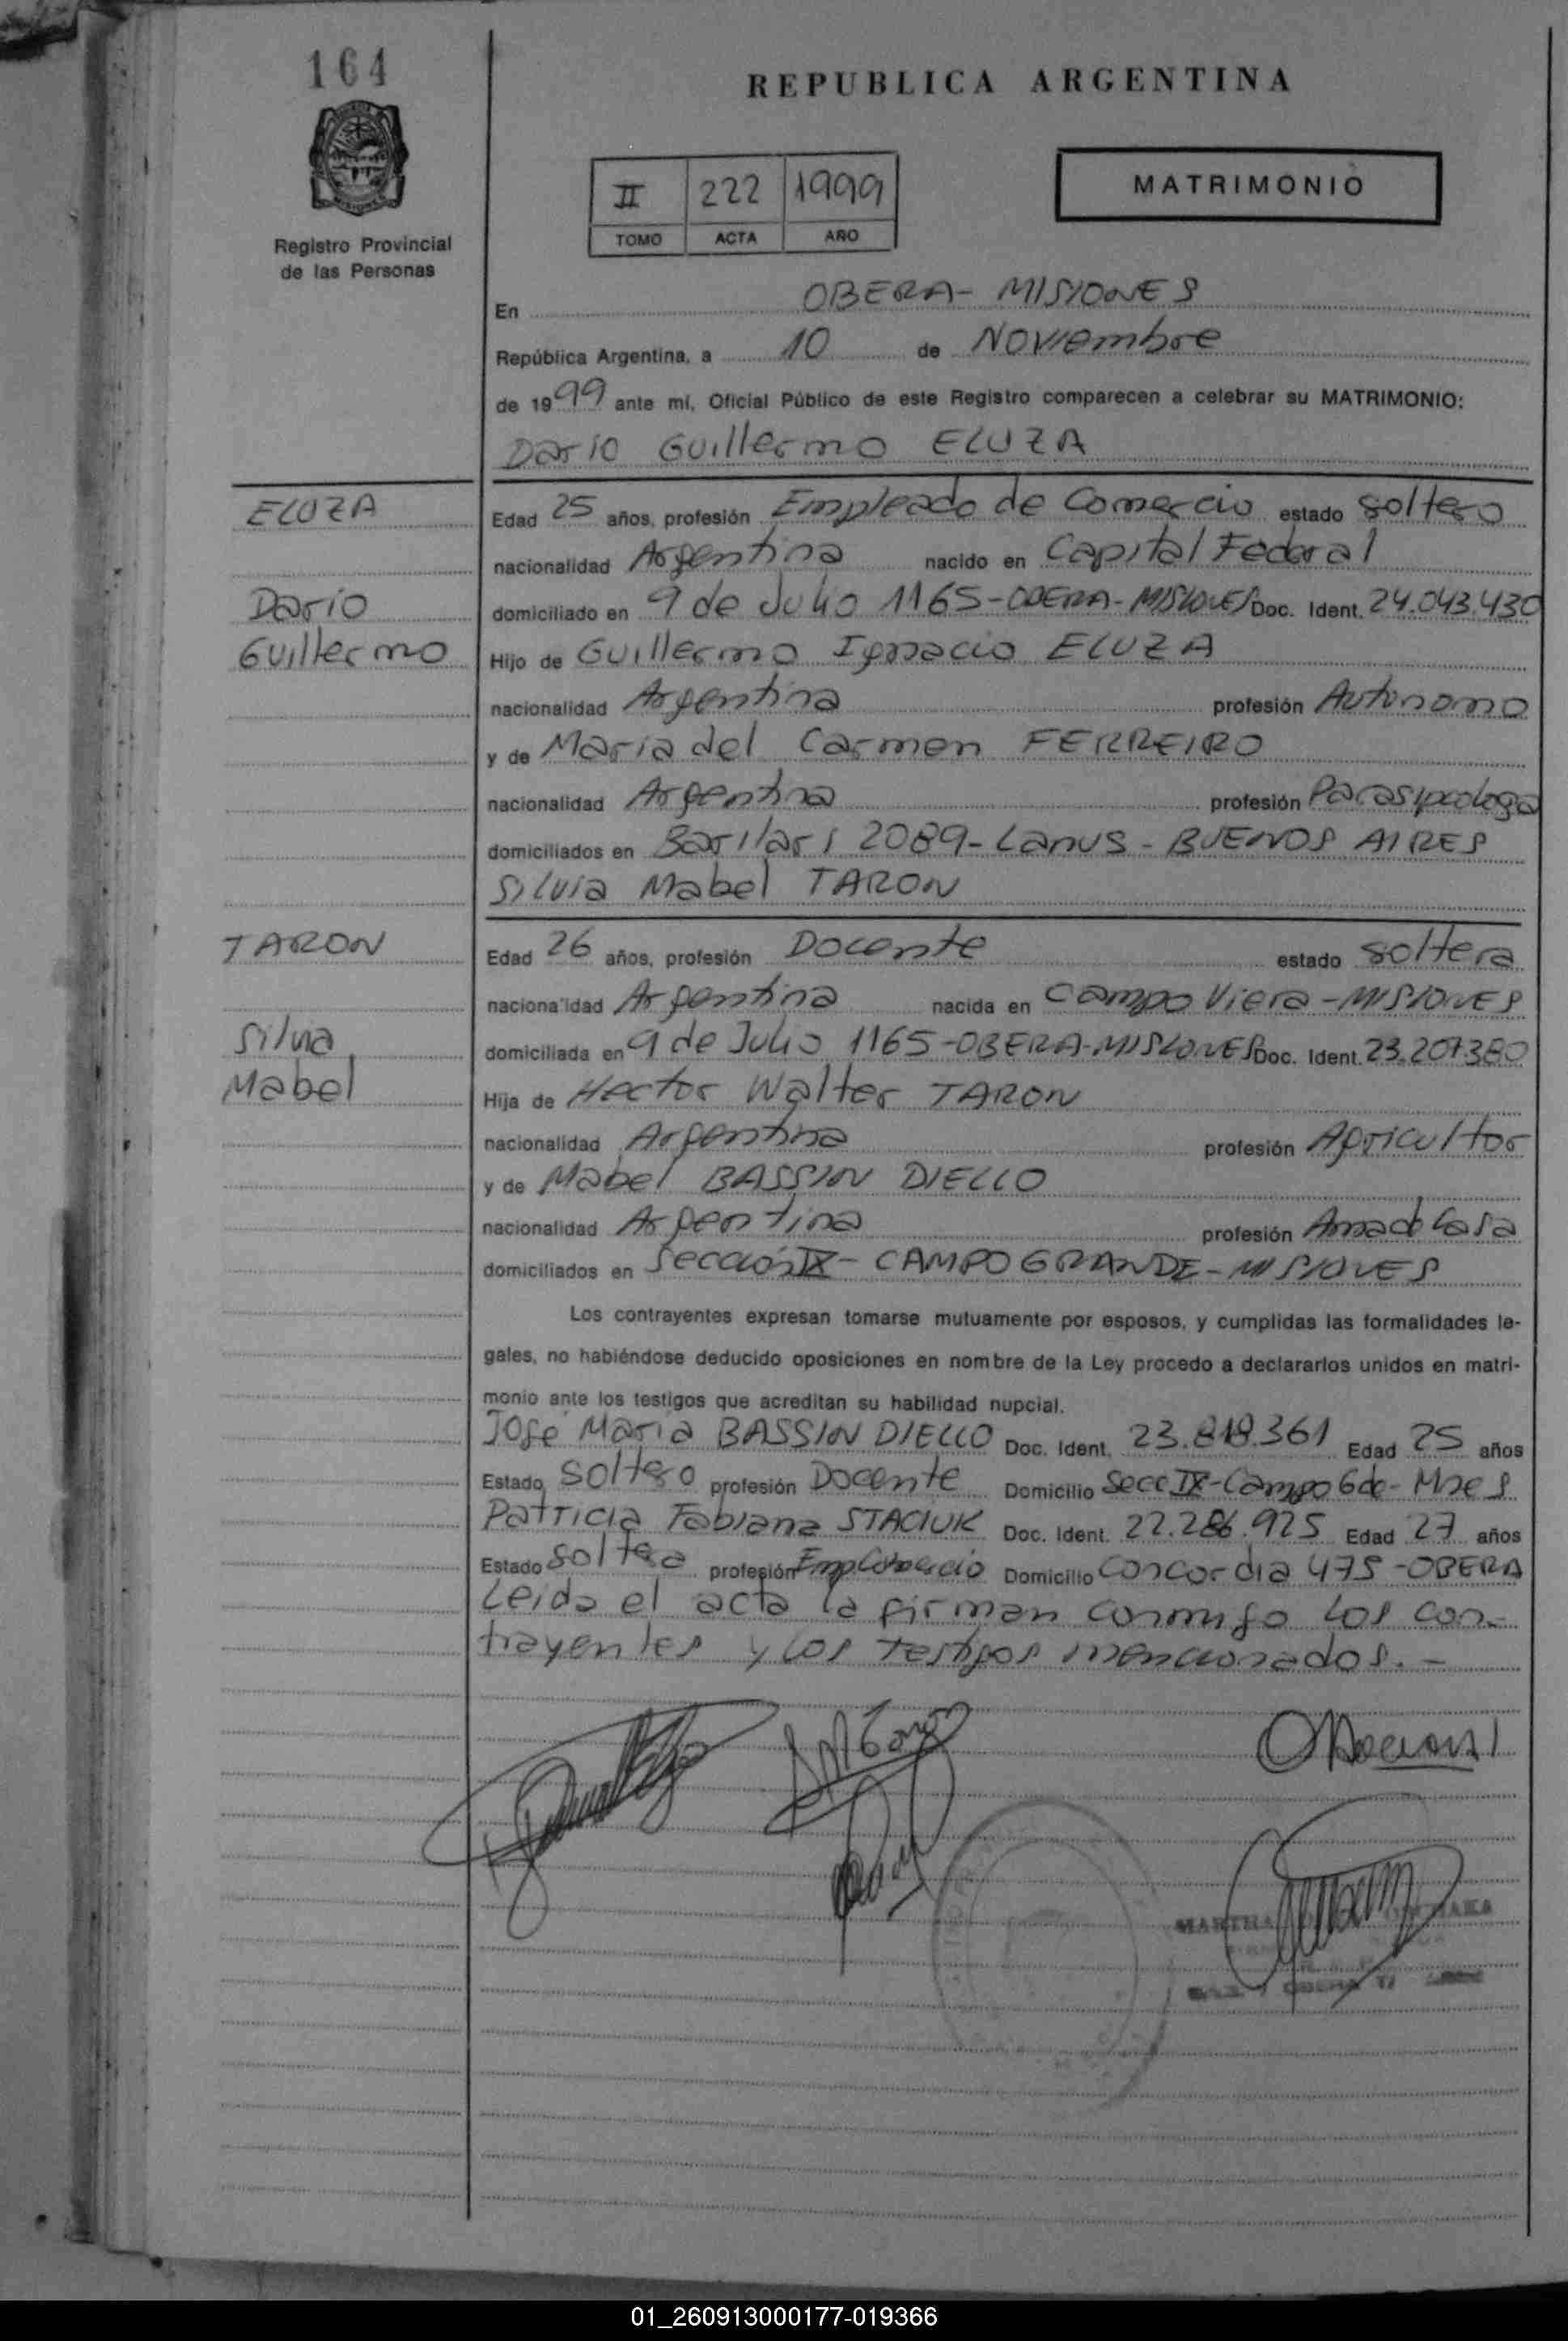 164
REPUBLICA ARGENTINA
Registro Provincial
de las Personas
II 222 1999
TOMO ACTA AÑO
MATRIMONIO
En OBERA- MISIONES
República Argentina, a 10 de Noviembre
de 1999 ante mí, Oficial Público de este Registro comparecen a celebrar su MATRIMONIO:
Dario Guillermo ELUZA
ELUZA
Dario
Guillermo
Edad 25 años, profesión Empleado de Comercio estado soltero
nacionalidad Argentina nacido en Capital Federal
domiciliado en 9 de Julio 1165-OBERA-MISIONES Doc. Ident. 24.043.430
Hijo de Guillermo Ignacio ELUZA
nacionalidad Argentina profesión Autonomo
y de Maria del Carmen FERREIRO
nacionalidad Argentina profesión
domiciliados en Barilari 2089-Lanus-BUENOS AIRES
Silvia Mabel TARON
TARON
Silvia
Mabel
Edad 26 años, profesión Docente estado soltera
nacionalidad Argentina nacida en Campo Viera-MISIONES
domiciliada en 9 de Julio 1165-OBERA-MISIONES Doc. Ident. 23.207.380
Hija de Hector Walter TARON
nacionalidad Argentina profesión Agricultor
y de Mabel BASSIN DIELLO
nacionalidad Argentina profesión Ama de Casa
domiciliados en Sección IX- CAMPO GRANDE-MISIONES
Los contrayentes expresan tomarse mutuamente por esposos, y cumplidas las formalidades le-
gales, no habiéndose deducido oposiciones en nombre de la Ley procedo a declararlos unidos en matri-
monio ante los testigos que acreditan su habilidad nupcial.
José Maria BASSIN DIELLO Doc. Ident. 23.818.361 Edad 25 años
Estado soltero profesión Docente Domicilio Secc IX-Campo Gde- Mnes
Patricia Fabiana STACIUK Doc. Ident. 22.286.925 Edad 27 años
Estado soltera profesión Emp Comercio Domicilio Concordia 475-OBERA
Leida el acta la firman conmigo los con-
trayentes y los testigos mencionados.-
MARTHA
01_260913000177-019366